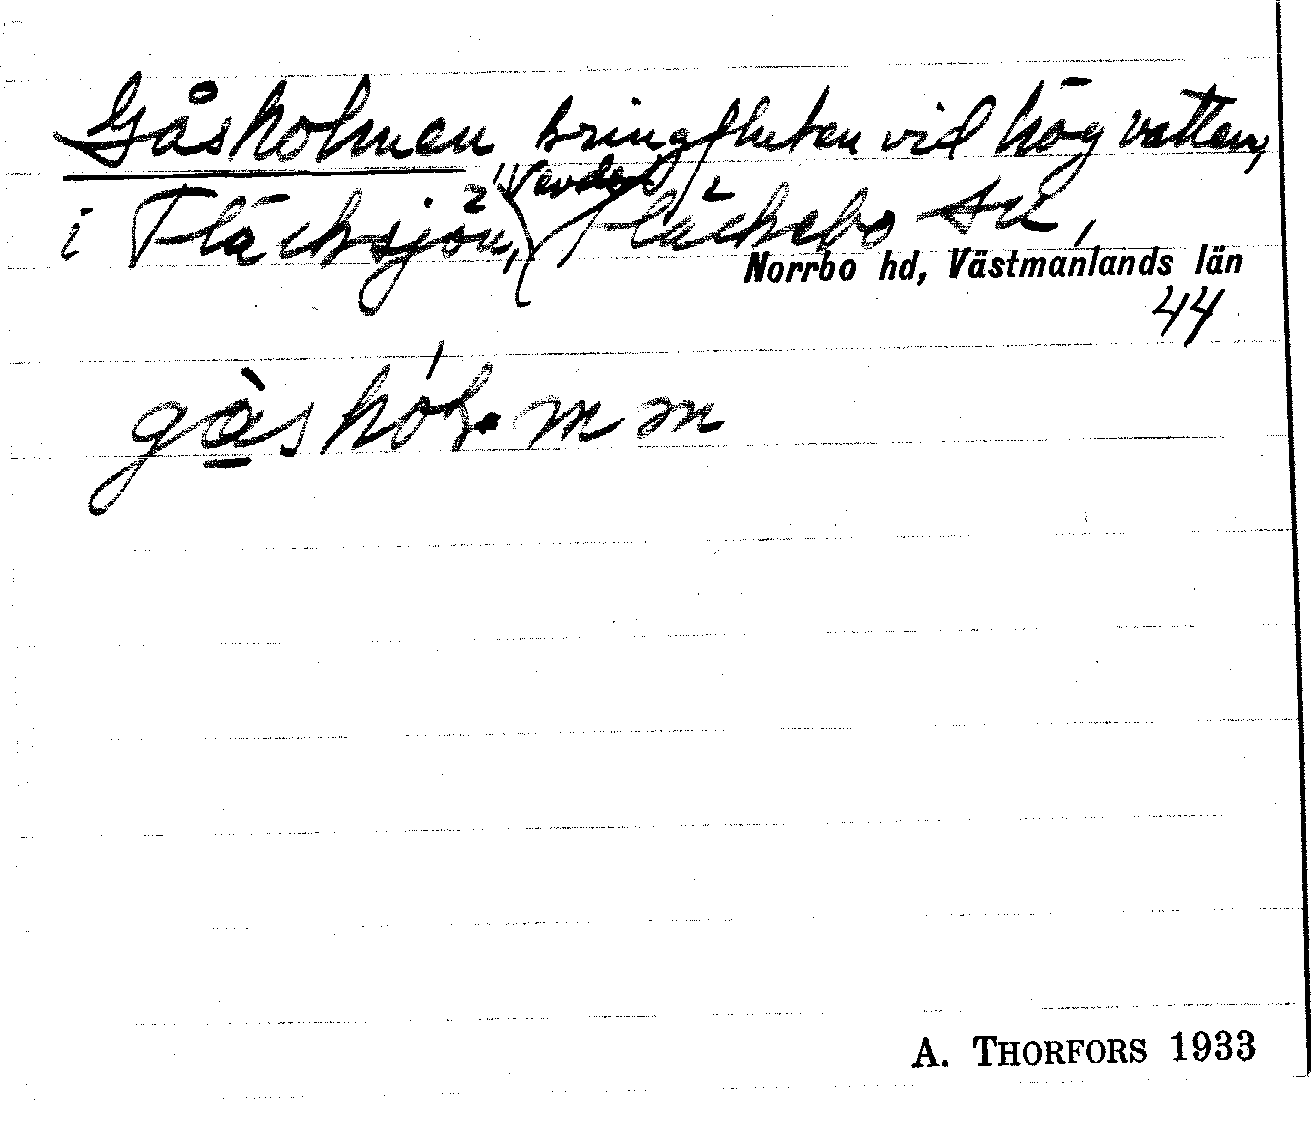 Gåsholmen kringfluten vid högvatten,
i Fläcksjön, Fläckebo sn,
Norrbo hd, Västmanlands län
44
gåshól·mm
A. THORFORS 1933